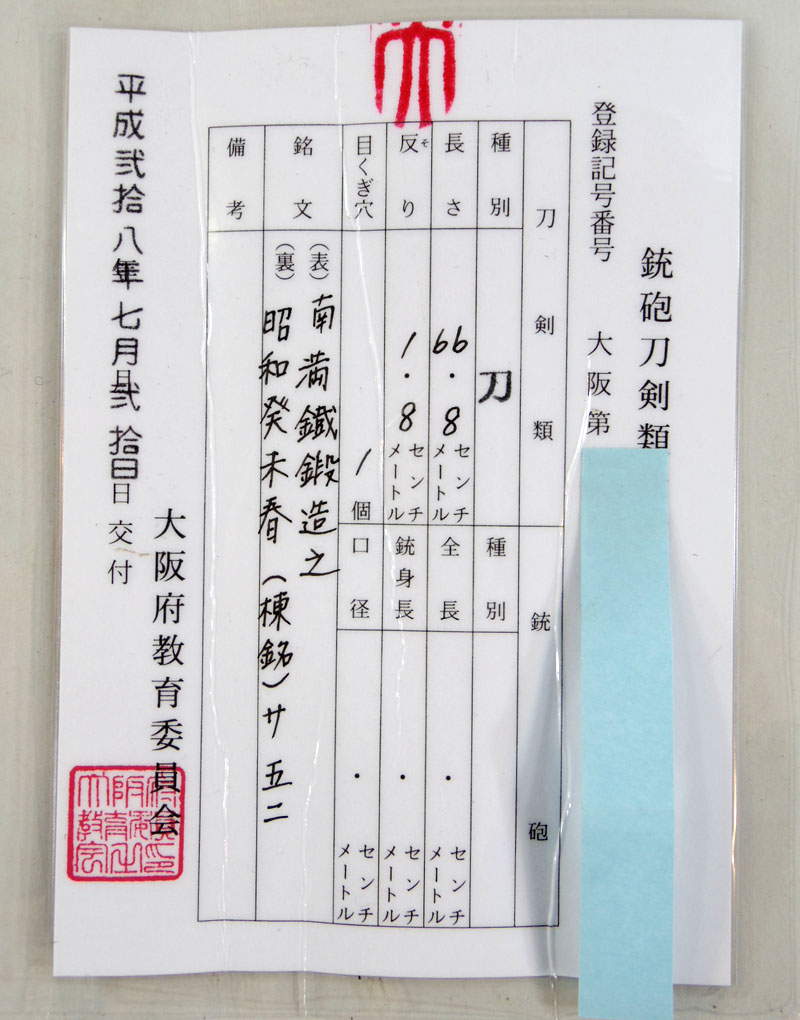 銃砲刀剣類
登録記号番号 大阪第
刀剣類
銃砲
種別 刀
種別
長さ 66.8 センチメートル
全長 . センチメートル
反り 1.8 センチメートル
そ
銃身長 . センチメートル
目くぎ穴 1個
口径 . センチメートル
銘文 (表) 南満鐵鍛造之
(裏) 昭和癸未春 (棟銘) サ 五二
備考
平成弐拾八年七月弐拾日 日交付
大阪府教育委員会